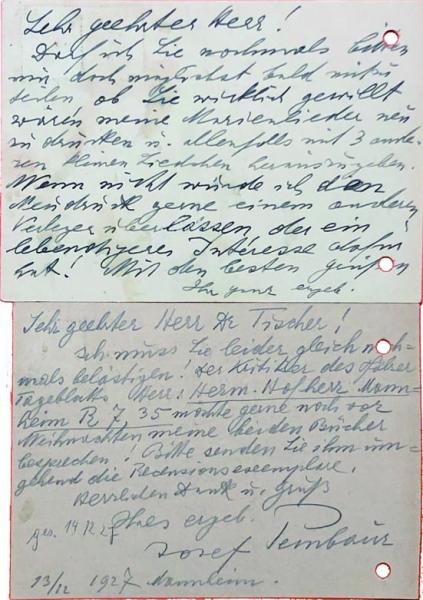 Sehr geehrter Herr!
Darf ich Sie nochmals bitten
mir doch möglichst bald mitzu
teilen ob Sie wirklich gewillt
waren meine Marienlieder neu
zu drucken u. allenfalls mit 3 ande-
ren kleinen Liedchen herauszugeben.
Wenn nicht würde ich den
Neudruck gerne einem anderen
Verleger überlassen der ein
lebendigeres Interesse dafür
hat! Mit den besten Grüßen
Ihr ganz ergeb.
Sehr geehrter Herr Dr Tischer!
Ich muss Sie leider gleich noch-
mals belästigen! Der Kritiker des
Tageblatts Herr: Herm. Hofherr Mann-
heim R 7, 35 möchte gerne noch vor
Weihnachten meine beiden Bücher
besprechen! Bitte senden Sie ihm um-
gehend die Recensionsexemplare.
Herzlichen Dank u. Gruß
Ihres ergeb.
ges. 14 12 27
Josef Pembaur
13/12 1927 Mannheim.